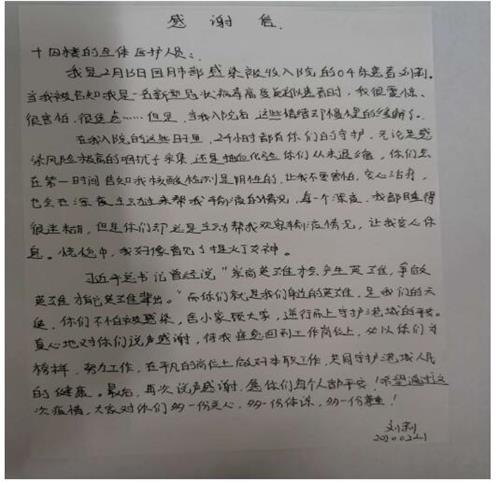 感谢信
十四楼的全体医护人员:
我是2月15日因肺部感染被收入院的04床患者刘莉。
当我被告知我是一名新型冠状病毒高度疑似患者时,我很震惊、
很害怕、很焦虑……但是,当我入院后,这些情绪却慢慢的缓解了。
在我入院的这些日子里,24小时都有你们的守护,无论是感
染风险极高的咽拭子采集,还是抽血化验你们从未退缩,你们会
在第一时间告知我核酸检测是阴性的,让我不要害怕,安心治疗,
也会在深夜主动过来帮我看输液的情况,每一个深夜,我都睡得
很迷糊,但是你们却总是主动帮我观察输液情况,让我安心休
息。恍惚中,我好像看见了提灯女神。
习近平总书记曾经说“崇尚英雄才会产生英雄,争做
英雄才能英雄辈出。”而你们就是我们身边的英雄,是我们的天
使,你们不怕被感染,舍小家顾大家,逆行而上守护港城的平安。
真心地对你们说声感谢,待我痊愈回到工作岗位上,必以你们为
榜样,努力工作,在平凡的岗位上做好本职工作,共同守护港城人民
的健康。最后,再次说声感谢,愿你们每个人都平安!希望通过这
次疫情,大家对你们多一份关心,多一份体谅,多一份尊重!
刘莉
2020.02.21